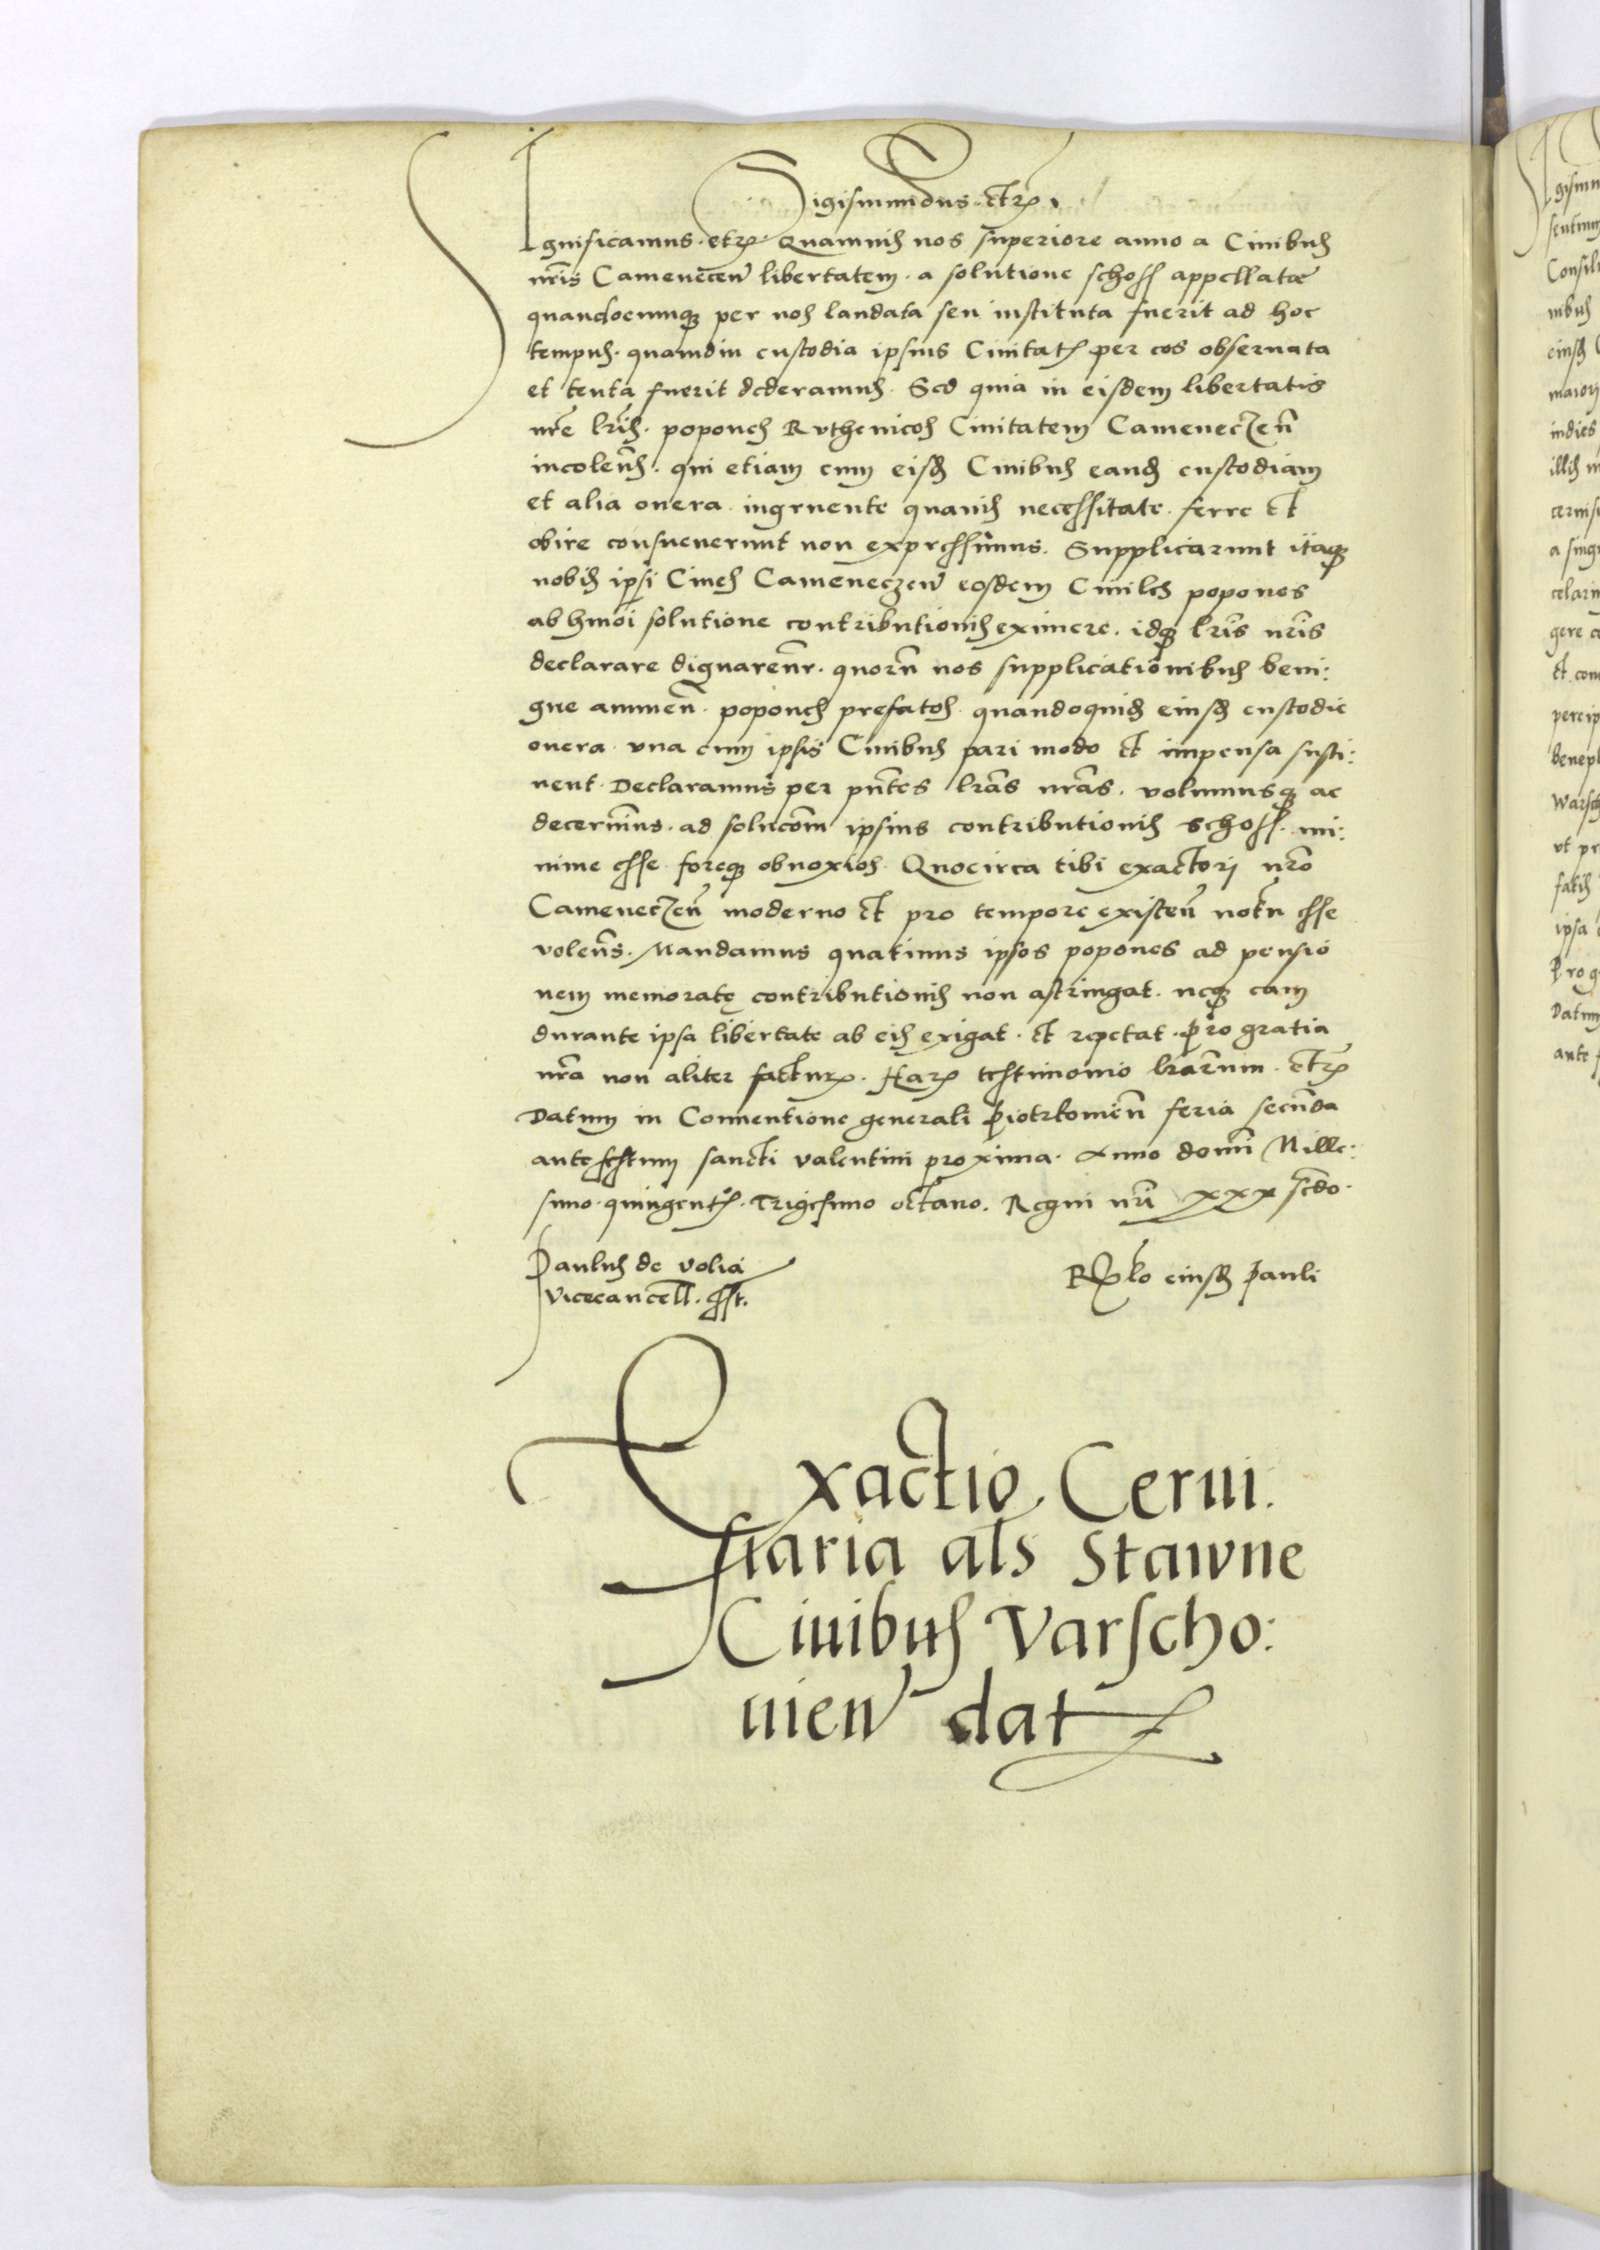 Sigismundus etcz
Significamus etcz Quamuis nos superiore anno a Ciuibus
nris Camenecen libertatem a solutione schoss appellate
quandocunq per nos laudata seu instituta fuerit ad hoc
tempus quamdiu custodia ipsius Ciuitatis per eos obseruata
et tenta fuerit dederamus Sed quia in eisdem libertatis
nre lris popones Ruthenicos Ciuitatem Cameneczen
incolens qui etiam cum eisd Ciuibus eand custodiam
et alia onera ingruente quauis necessitate ferre et
obire consueuerunt non expressimus Supplicarunt itaq
nobis ipsi Ciues Cameneczen eosdem Ciuiles popones
ab hmoi solutione contributionis eximere idq lris nris
declarare dignarenr quoru nos supplicationibus beni:
gne annuen popones prefatos quandoquid eiusd custodie
onera vna cum ipsis Ciuibus pari modo et impensa susti:
nent Declaramus per pntes lras nras volumusq ac
decernimus ad solucom ipsius contributionis schoss mi:
nime esse foreq obnoxios Quocirca tibi exactori nro
Cameneczen moderno et pro tempore existen notu esse
volens Mandamus quatinus ipsos popones ad pensio
nem memorate contributionis non astringat neq eam
durante ipsa libertate ab eis exigat et repetat Pro gratia
nra non aliter factur Harz testimonio lrarum etcz
Datum in Conuentione generali Piotrkouien feria secunda
ante festum sancti valentini proxima Anno domi Mille:
simo quingentes Trigesimo octauo Regni nri xxx scdo
Paulus de volia
Vicecancell sst
Rlo eiusd Pauli
Exactio Cerui.
siaria als Stawne
Ciuibus Varscho:
uien dat
gisimun
sentium
Consili
nibus
eiusd
maiori
indies
illis
a sing
gere
percip
benepl
Warsch
ut pr
fatis
ipsa
Prog
Datum
ante